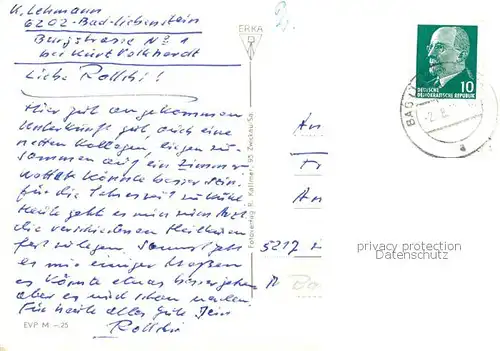 K. Lehmann
6202-Bad-Liebenstein
Burgstrasse No 1
bei Kurt Volkhardt
Liebe Rollchi!
Hier gut angekommen
Unterkunft gut, auch eine
netten Kollegen, liegen zu-
sammen auf ein Zimmer
könnte besser sein.
für die Jahreszeit zu kühl.
Heute geht es nun zum Arzt
die verschiedenen Heilkuren
fest zu legen. Sonst geht
es mir einiger Maßen
es könnte etwas besser gehen
aber es wird schon werden.
Für heute alles gute Dein
Rollchi
EVP M -.25
ERKA
Fotoverlag R. Kallmer, 95 Zwickau/Sa.
DEUTSCHE
DEMOKRATISCHE REPUBLIK
10
BAD
-2.8.
An
Fr
An
5217
privacy protection
Datenschutz